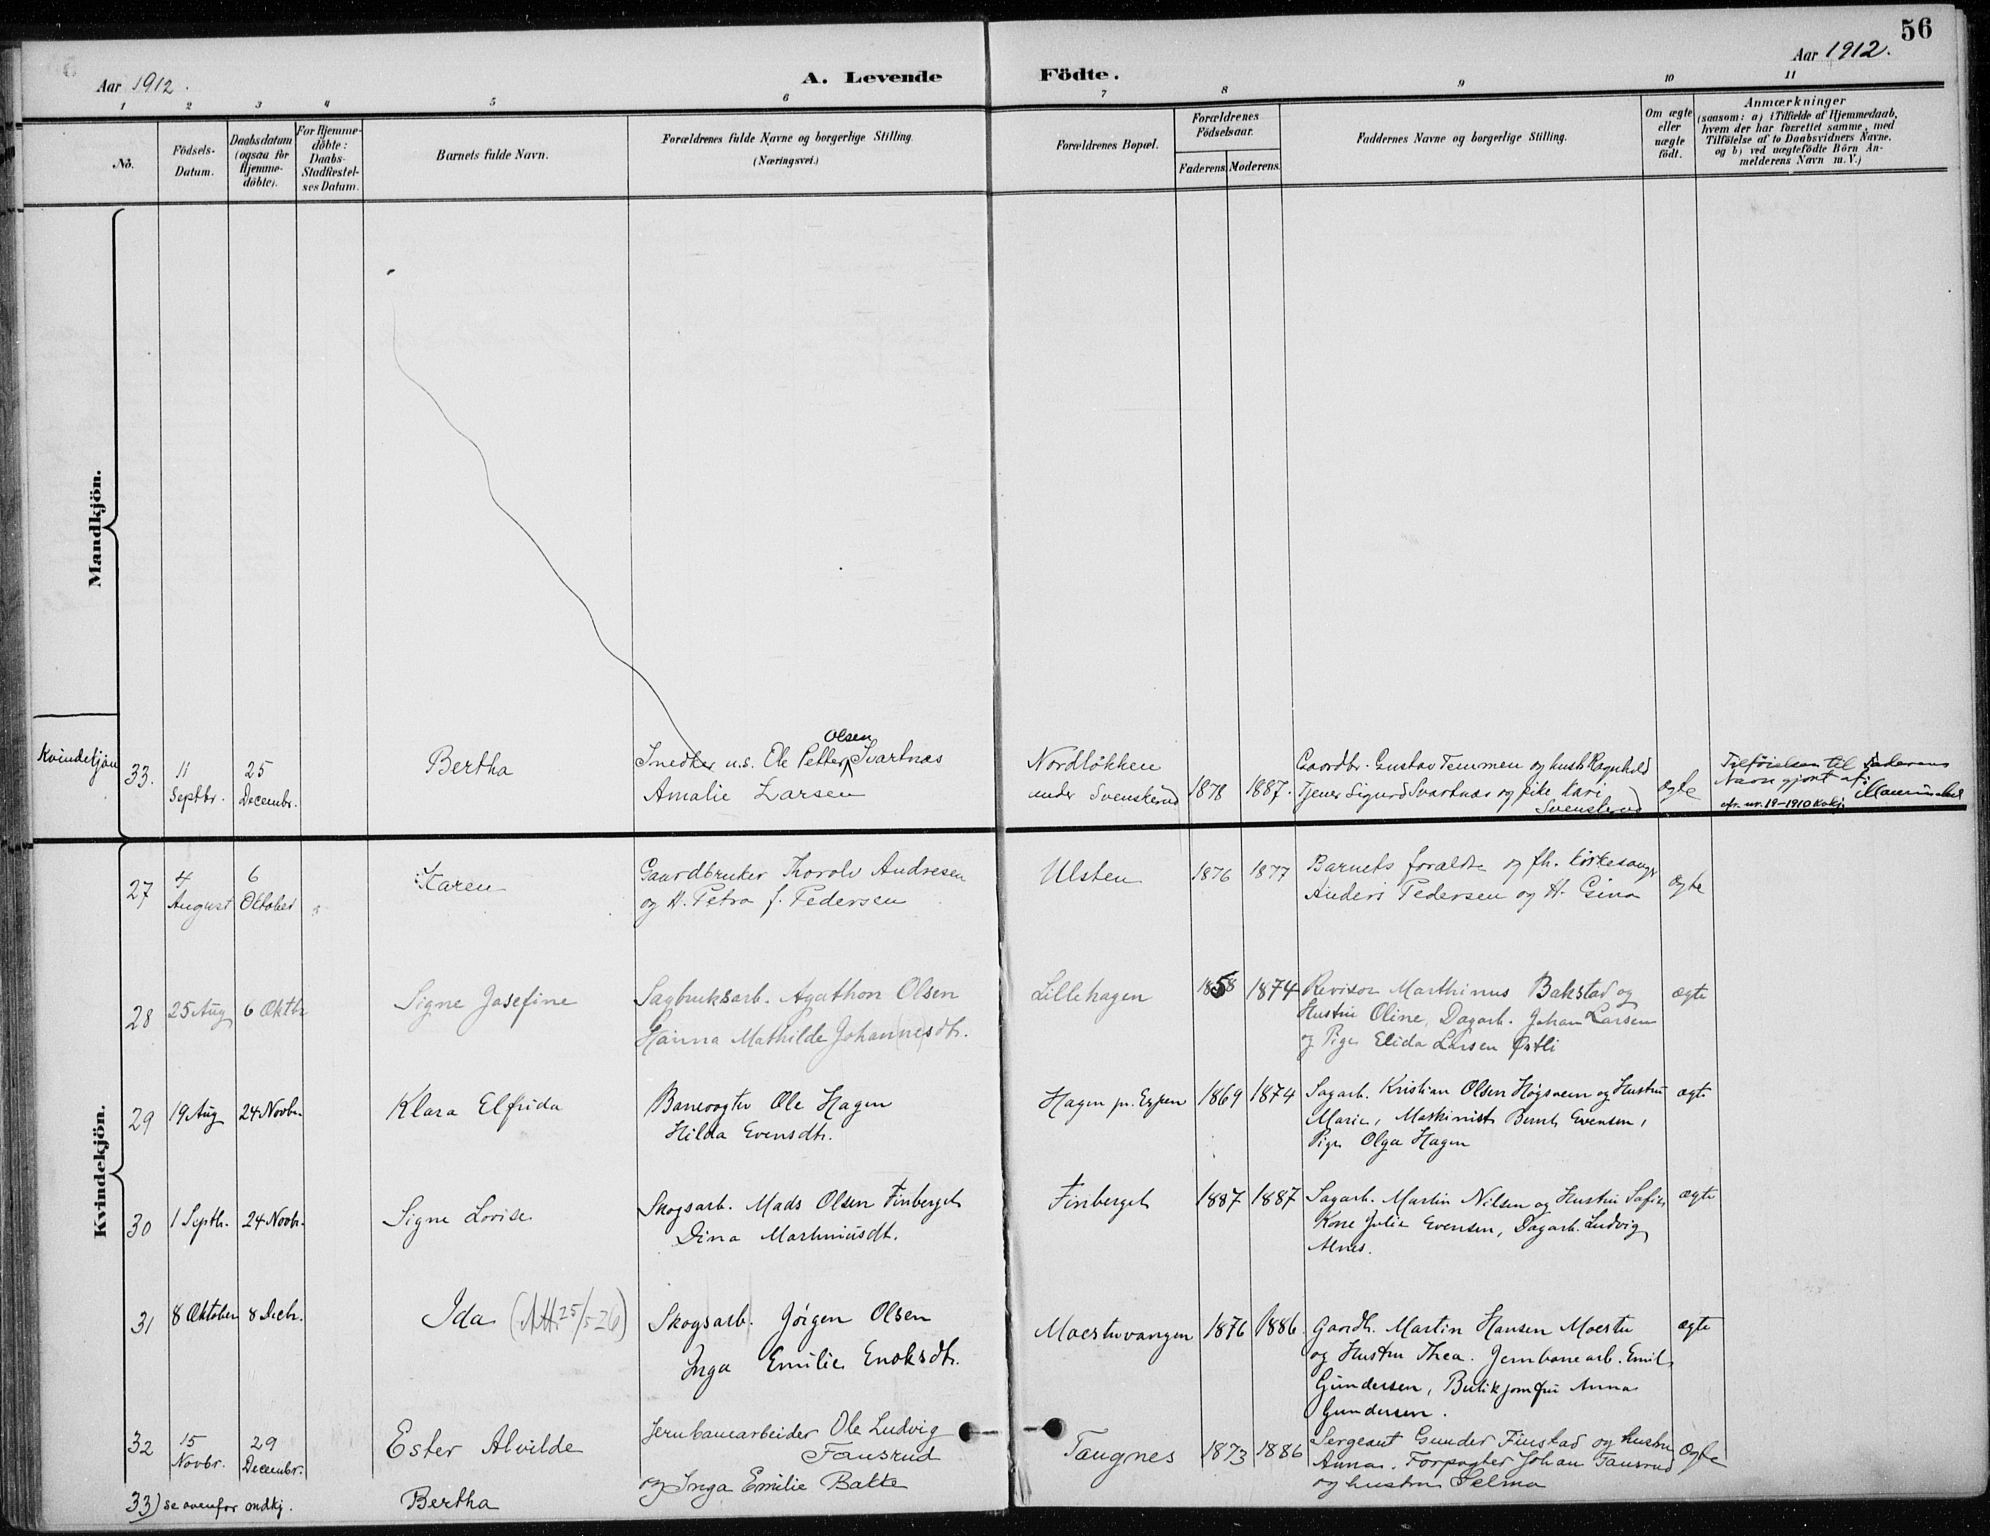 56
Aar 1912.
A. Levende Födte.
Aar 1912.
1 2 3 4 5 6 7 8 9 10 11
No.
Födsels-Datum.
Daabsdatum (ogsaa for Hjemme-döbte).
For Hjemme-döbte: Daabs-Stadfestel-ses Datum.
Barnets fulde Navn.
Forældrenes fulde Navne og borgerlige Stilling.
(Næringsvei.)
Forældrenes Bopæl.
Forældrenes Födselsaar.
Faderens. Moderens.
Faddernes Navne og borgerlige Stilling.
Om ægte eller uægte födt.
Anmærkninger
(saasom: a) i Tilfælde af Hjemmedaab,
hvem der har forrettet samme, med
Tilföielse af to Daabsvidners Navne.
og b) ved uægtefödte Börn An-
melderens Navn m. V.)
Mandkjön.
Kvindekjön
33. 11 Septbr. 25 Decembr. Bertha
Snedker u.s. Ole Petter Olsen Svartnæs
Amalie Larsen
Nordløkken
under Svenskerud 1878 1887.
Gaardbr. Gustav Temmen og hustr. Ragnhild
Tjener Sigurd Svartnæs og pike Kari
Svenskerud
ægte
Tilføielsen til Faderens
Navn gjort af
cfr. nr. 19-1910 kvkj.
Kvindekjön.
27 4 August 6 Oktober Karen
Gaardbruker Thorolv Andresen
og H. Petra f. Pedersen
Ulsten 1876 1877
Barnets foræld. og fh. kirkesanger
Anders Pedersen og H. Gina
ægte
28 25 Aug 6 Oktbr Signe Josefine
Sagbruksarb. Agathon Olsen
Hanna Mathilde Johan(ne)sdtr.
Lillehagen 1858 1874
Revisor Marthinus Bakstad og
Hustru Oline, Dagarb. Johan Larsen
og Pige Elida Larsen Østli
ægte
29 19 Aug 24 Novbr. Klara Elfrida
Banevogter Ole Hagen
Hilda Evensdtr.
Hagen pr. Espen 1869 1874
Sagarb. Kristian Olsen Høgsveen og Hustru
Marie, Maskinist Bernh. Evensen,
Pige Olga Hagen
ægte
30 1 Septbr. 24 Novbr. Signe Lovise
Skogsarb. Mads Olsen Finberget
Dina Marthinusdt.
Finberget 1887 1887
Sagarb. Martin Nilsen og Hustru Sofie,
Kone Julie Evensen, Dagarb. Ludvig
Alnes.
ægte
31 8 Oktober 8 Decbr. Ida (Att. 25/5 26)
Skogsarb. Jørgen Olsen
Inga Emilie Enoksdtr.
Moestuvangen 1876 1886.
Gaardb. Martin Hansen Moestu
og Hustru Thea. Jernbanearb. Emil
Gundersen, Butikjomfru Anna
Gundersen.
ægte
32 15 Novbr. 29 Decembr. Ester Alvilde
Jernbanearbeider Ole Ludvig
Tansrud
og Inga Emilie Bakke
Tangnes 1873 1886
Sergeant Gunder Finstad og hustru
Anna. Forpagter Johan Tansrud
og hustru Selma
ægte
33) se ovenfor mdkj. Bertha